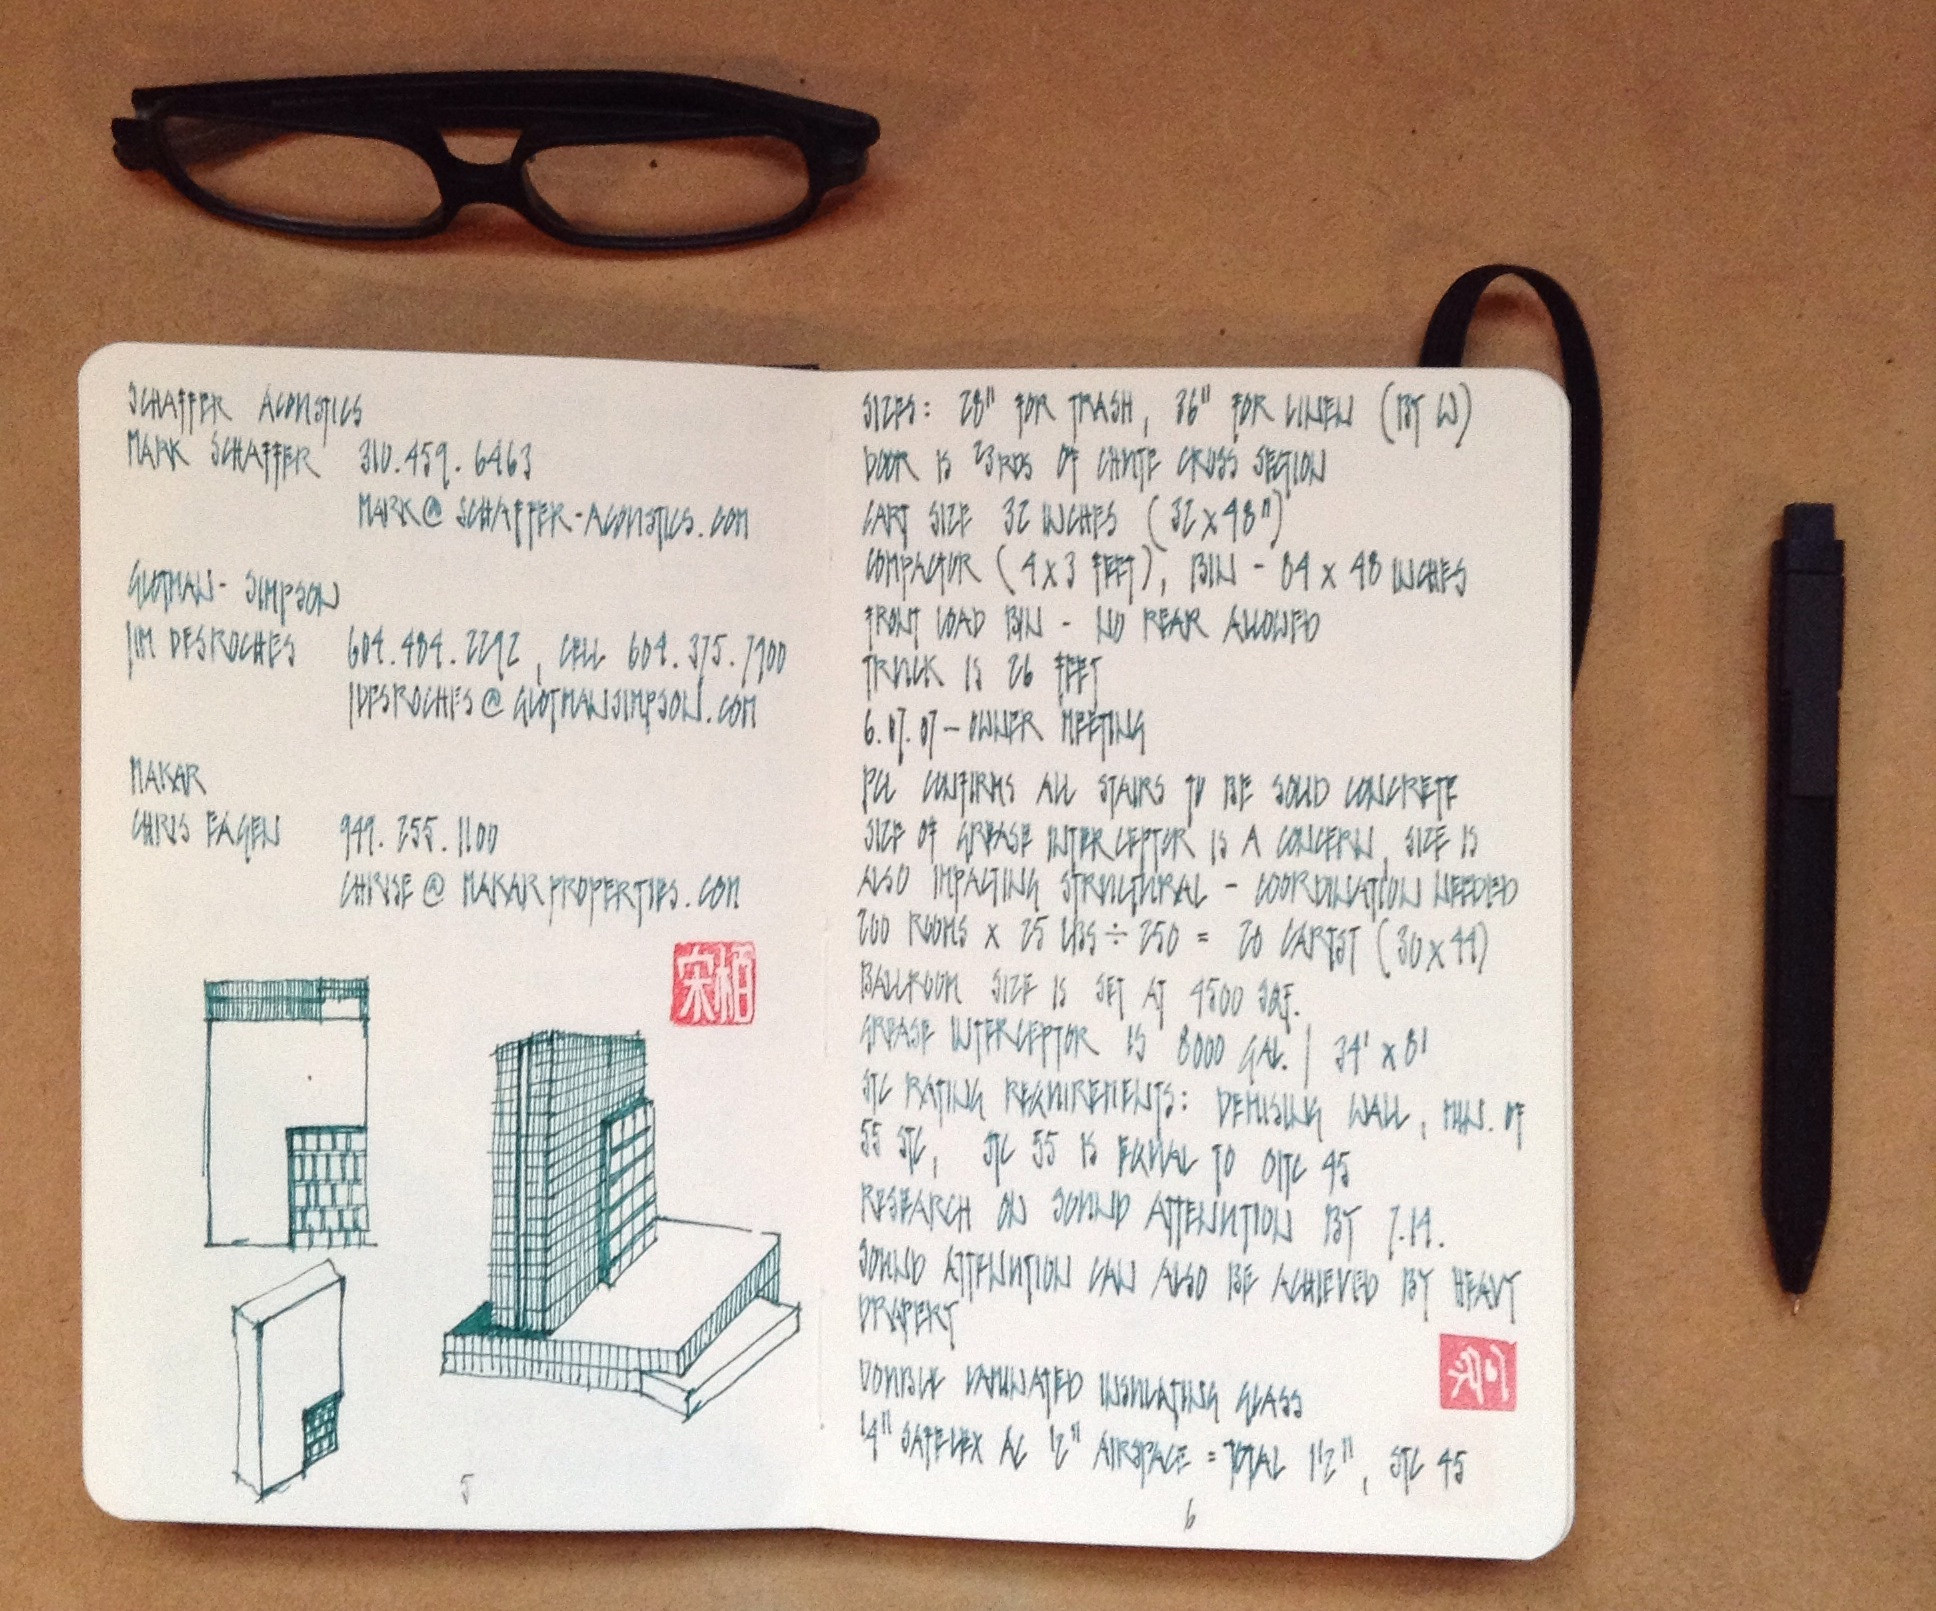 SCHAFFER ACOUSTICS
MARK SCHAFFER 310.459.6463
MARK@SCHAFFER-ACOUSTICS.COM
GLOTMAN-SIMPSON
JIM DESROCHES 604.484.2292, CELL 604.375.7900
JDESROCHES@GLOTMANSIMPSON.COM
MAKAR
CHRIS EAGEN 949.255.1100
CHRISE@MAKARPROPERTIES.COM
宋柏
5
SIZES: 28" FOR TRASH, 36" FOR LINEN (BY W)
DOOR IS 2/3RDS OF CHUTE CROSS SECTION
CART SIZE 32 INCHES (32 x 48")
COMPACTOR (4 x 3 FEET), BIN - 84 x 48 INCHES
FRONT LOAD BIN - NO REAR ALLOWED
TRUCK IS 26 FEET
6.07.07 - OWNER MEETING
PCL CONFIRMS ALL STAIRS TO BE SOLID CONCRETE
SIZE OF GREASE INTERCEPTOR IS A CONCERN, SIZE IS
ALSO IMPACTING STRUCTURAL - COORDINATION NEEDED
200 ROOMS x 25 LBS ÷ 250 = 20 (30 x 44)
BALLROOM SIZE IS SET AT 4500 SQF.
GREASE INTERCEPTOR IS 8000 GAL. | 34' x 8'
STC RATING REQUIREMENTS: DEMISING WALL, MIN. OF
55 STC, STC 55 IS EQUAL TO OITC 45
RESEARCH ON SOUND ATTENUTION BY 7.14.
SOUND ATTENUTION CAN ALSO BE ACHIEVED BY HEAVY
DRAPERY
DOUBLE LAMINATED INSULATING GLASS
1/4" SAFELEX AC 1/2" AIRSPACE = TOTAL 1 1/2", STC 45
6